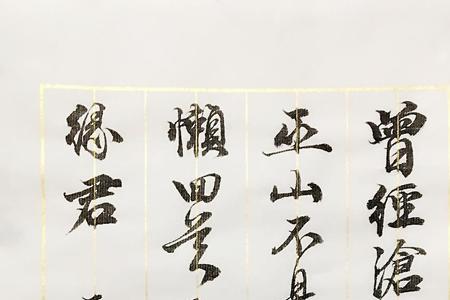 曾經滄
巫山不是
懶回
緣君